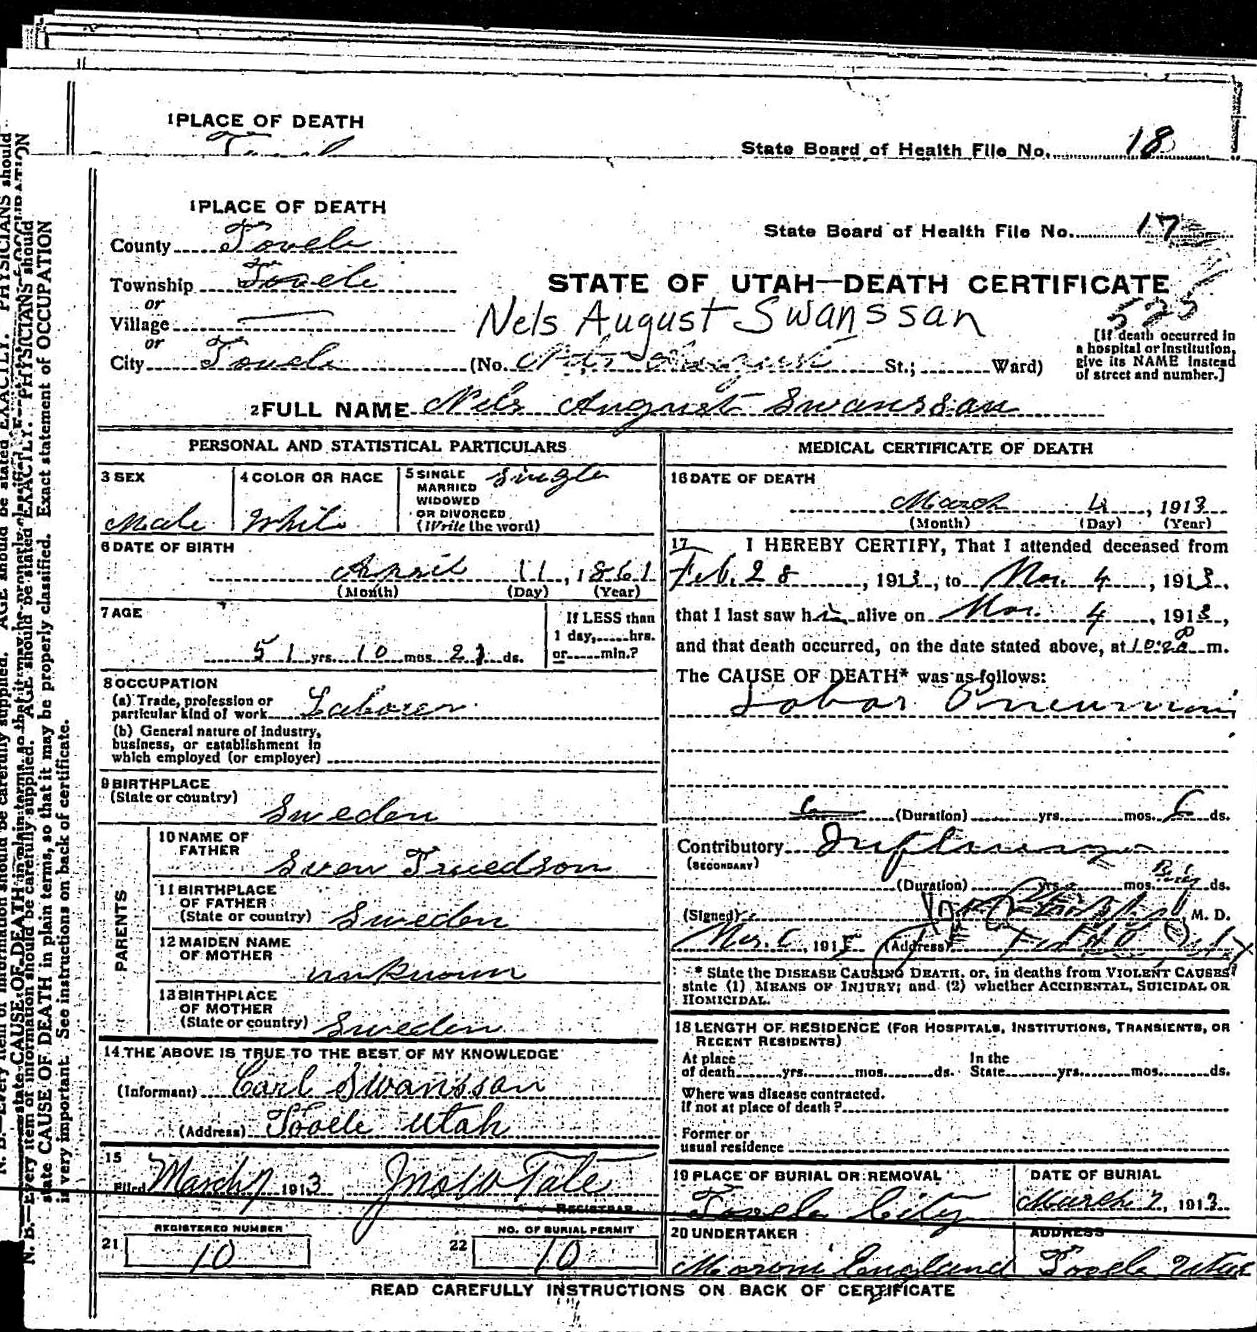 1 PLACE OF DEATH
State Board of Health File No. 18
1 PLACE OF DEATH
State Board of Health File No. 17
County Tooele
Township Tooele
STATE OF UTAH—DEATH CERTIFICATE
525
or
Village
Nels August Swanssan
or
City Tooele (No. St.; Ward)
[If death occurred in a hospital or institution, give its NAME instead of street and number.]
2 FULL NAME Nels August Swanssan
PERSONAL AND STATISTICAL PARTICULARS
3 SEX
Male
4 COLOR OR RACE
White
5 SINGLE
MARRIED
WIDOWED
OR DIVORCED
(Write the word)
Single
6 DATE OF BIRTH
April 11, 1861
(Month) (Day) (Year)
7 AGE
51 yrs. 10 mos. 21 ds.
If LESS than
1 day, hrs.
or min.?
8 OCCUPATION
(a) Trade, profession or
particular kind of work Laborer
(b) General nature of industry,
business, or establishment in
which employed (or employer)
9 BIRTHPLACE
(State or country)
Sweden
PARENTS
10 NAME OF
FATHER
Sven Truedson
11 BIRTHPLACE
OF FATHER
(State or country) Sweden
12 MAIDEN NAME
OF MOTHER
unknown
13 BIRTHPLACE
OF MOTHER
(State or country) Sweden
14 THE ABOVE IS TRUE TO THE BEST OF MY KNOWLEDGE
(Informant) Carl Swansson
(Address) Tooele Utah
15
Filed March 7 1913 Tate
REGISTRAR
REGISTERED NUMBER
21 10
NO. OF BURIAL PERMIT
22 10
MEDICAL CERTIFICATE OF DEATH
16 DATE OF DEATH
March 4, 1913
(Month) (Day) (Year)
17 I HEREBY CERTIFY, That I attended deceased from
Feb. 28, 1913, to Mar. 4, 1913,
that I last saw him alive on Mar. 4, 1913,
and that death occurred, on the date stated above, at 10:20 P m.
The CAUSE OF DEATH* was as follows:
Lobar Pneumonia
(Duration) yrs. mos. ds.
Contributory Influenza
(SECONDARY)
(Duration) yrs. mos. ds.
(Signed) M. D.
191 (Address)
* State the DISEASE CAUSING DEATH, or, in deaths from VIOLENT CAUSES,
state (1) MEANS OF INJURY; and (2) whether ACCIDENTAL, SUICIDAL OR
HOMICIDAL.
18 LENGTH OF RESIDENCE (FOR HOSPITALS, INSTITUTIONS, TRANSIENTS, OR
RECENT RESIDENTS)
At place In the
of death yrs. mos. ds. State yrs. mos. ds.
Where was disease contracted.
if not at place of death?
Former or
usual residence
19 PLACE OF BURIAL OR REMOVAL
Tooele City
DATE OF BURIAL
March 7, 1913
20 UNDERTAKER
Moroni England
ADDRESS
Tooele Utah
READ CAREFULLY INSTRUCTIONS ON BACK OF CERTIFICATE
N. B.—Every item of information should be carefully supplied. AGE should be stated EXACTLY. PHYSICIANS should
state CAUSE OF DEATH in plain terms, so that it may be properly classified. Exact statement of OCCUPATION
is very important. See instructions on back of certificate.